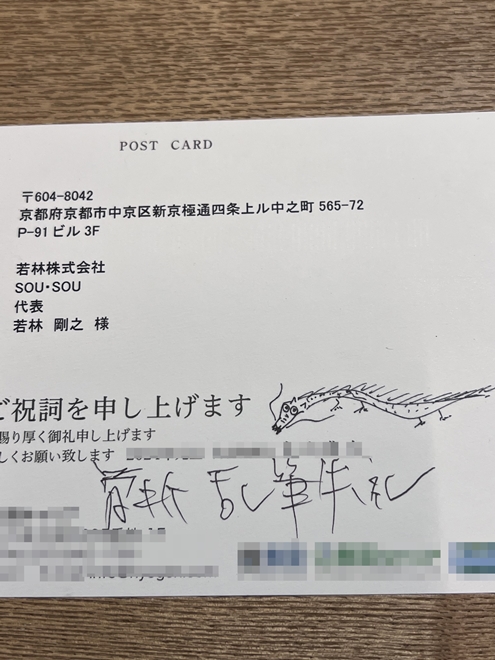 POST CARD
〒604-8042
京都府京都市中京区新京極通四条上ル中之町 565-72
P-91 ビル 3F
若林株式会社
SOU・SOU
代表
若林 剛之 様
ご祝詞を申し上げます
賜り厚く御礼申し上げます
しくお願い致します
乱筆失礼